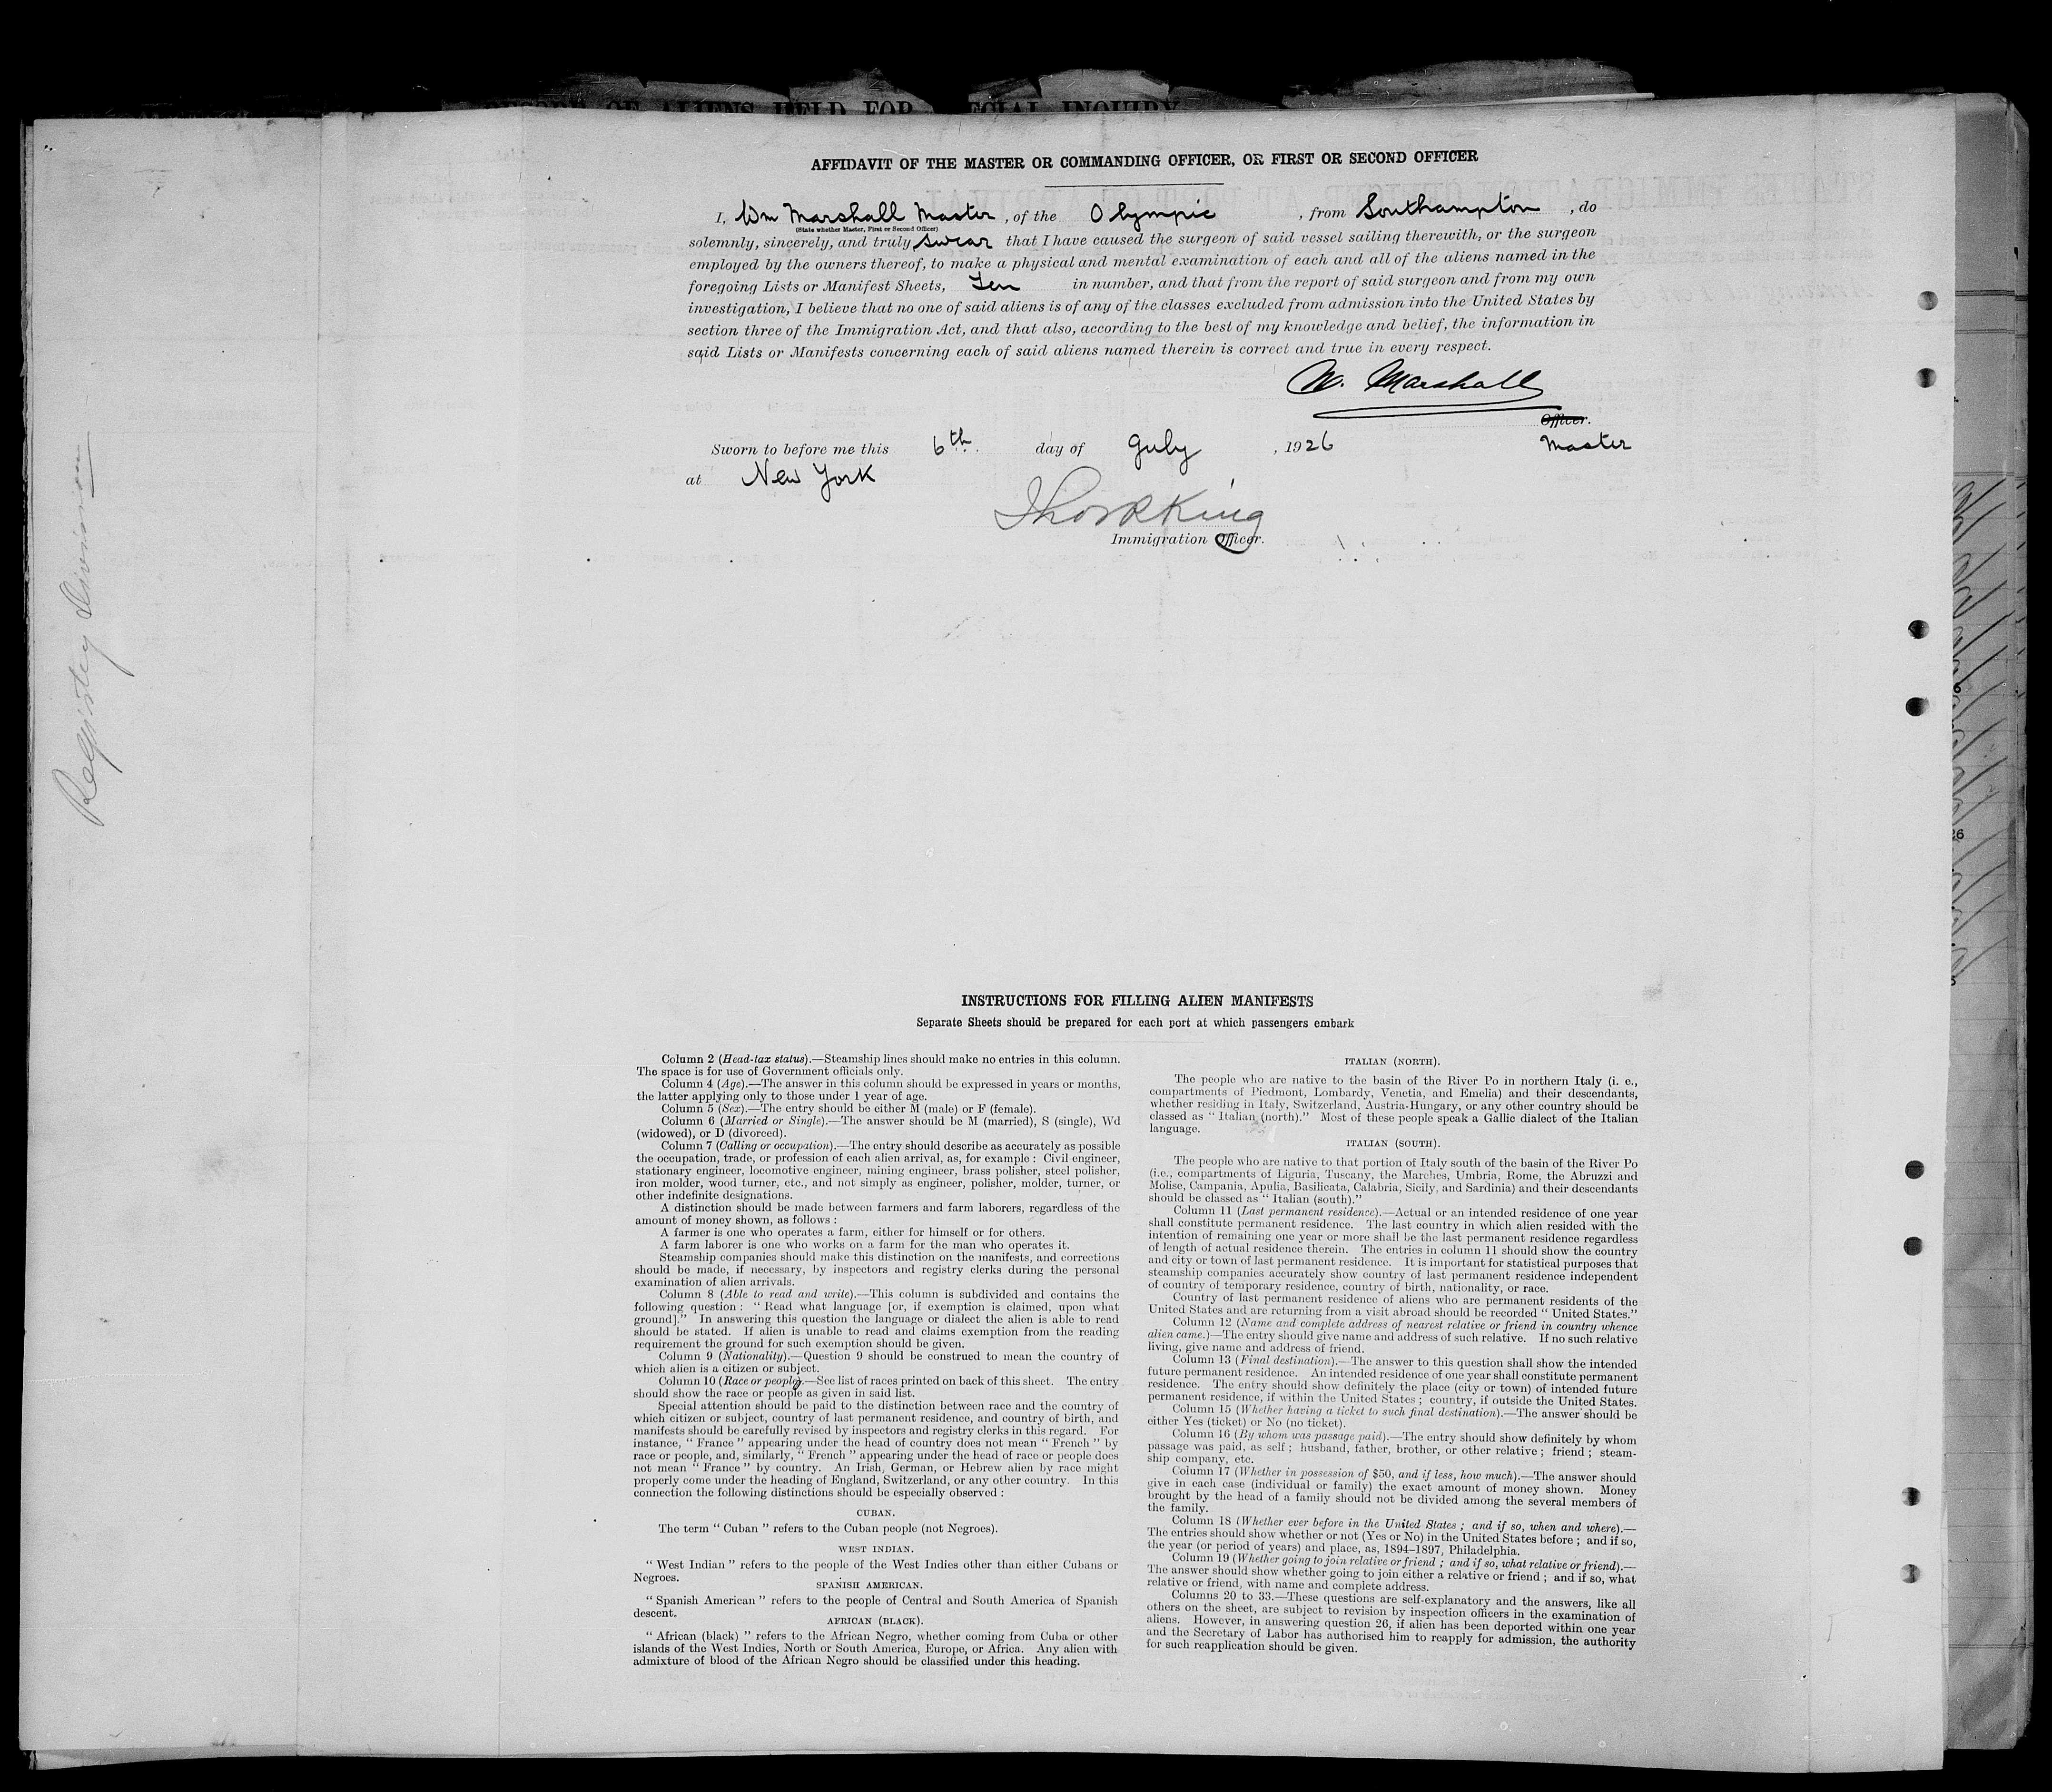 RECORD OF ALIENS HELD FOR SPECIAL INQUIRY
AFFIDAVIT OF THE MASTER OR COMMANDING OFFICER, OR FIRST OR SECOND OFFICER
I, Wm Marshall Master, of the Olympic, from Southampton, do
(State whether Master, First or Second Officer)
solemnly, sincerely, and truly swear that I have caused the surgeon of said vessel sailing therewith, or the surgeon
employed by the owners thereof, to make a physical and mental examination of each and all of the aliens named in the
foregoing Lists or Manifest Sheets, Ten in number, and that from the report of said surgeon and from my own
investigation, I believe that no one of said aliens is of any of the classes excluded from admission into the United States by
section three of the Immigration Act, and that also, according to the best of my knowledge and belief, the information in
said Lists or Manifests concerning each of said aliens named therein is correct and true in every respect.
W. Marshall
Officer.
Sworn to before me this 6th day of July, 1926 Master
at New York
King
Immigration Officer.
Registry Division
INSTRUCTIONS FOR FILLING ALIEN MANIFESTS
Separate Sheets should be prepared for each port at which passengers embark
Column 2 (Head-tax status).—Steamship lines should make no entries in this column.
The space is for use of Government officials only.
Column 4 (Age).—The answer in this column should be expressed in years or months,
the latter applying only to those under 1 year of age.
Column 5 (Sex).—The entry should be either M (male) or F (female).
Column 6 (Married or Single).—The answer should be M (married), S (single), Wd
(widowed), or D (divorced).
Column 7 (Calling or occupation).—The entry should describe as accurately as possible
the occupation, trade, or profession of each alien arrival, as, for example : Civil engineer,
stationary engineer, locomotive engineer, mining engineer, brass polisher, steel polisher,
iron molder, wood turner, etc., and not simply as engineer, polisher, molder, turner, or
other indefinite designations.
A distinction should be made between farmers and farm laborers, regardless of the
amount of money shown, as follows :
A farmer is one who operates a farm, either for himself or for others.
A farm laborer is one who works on a farm for the man who operates it.
Steamship companies should make this distinction on the manifests, and corrections
should be made, if necessary, by inspectors and registry clerks during the personal
examination of alien arrivals.
Column 8 (Able to read and write).—This column is subdivided and contains the
following question : “ Read what language [or, if exemption is claimed, upon what
ground].” In answering this question the language or dialect the alien is able to read
should be stated. If alien is unable to read and claims exemption from the reading
requirement the ground for such exemption should be given.
Column 9 (Nationality).—Question 9 should be construed to mean the country of
which alien is a citizen or subject.
Column 10 (Race or people).—See list of races printed on back of this sheet. The entry
should show the race or people as given in said list.
Special attention should be paid to the distinction between race and the country of
which citizen or subject, country of last permanent residence, and country of birth, and
manifests should be carefully revised by inspectors and registry clerks in this regard. For
instance, “ France ” appearing under the head of country does not mean “ French ” by
race or people, and, similarly, “ French ” appearing under the head of race or people does
not mean “ France ” by country. An Irish, German, or Hebrew alien by race might
properly come under the heading of England, Switzerland, or any other country. In this
connection the following distinctions should be especially observed :
CUBAN.
The term “ Cuban ” refers to the Cuban people (not Negroes).
WEST INDIAN.
“ West Indian ” refers to the people of the West Indies other than either Cubans or
Negroes.
SPANISH AMERICAN.
“ Spanish American ” refers to the people of Central and South America of Spanish
descent.
AFRICAN (BLACK).
“ African (black) ” refers to the African Negro, whether coming from Cuba or other
islands of the West Indies, North or South America, Europe, or Africa. Any alien with
admixture of blood of the African Negro should be classified under this heading.
ITALIAN (NORTH).
The people who are native to the basin of the River Po in northern Italy (i. e.,
compartments of Piedmont, Lombardy, Venetia, and Emelia) and their descendants,
whether residing in Italy, Switzerland, Austria-Hungary, or any other country should be
classed as “ Italian (north).” Most of these people speak a Gallic dialect of the Italian
language.
ITALIAN (SOUTH).
The people who are native to that portion of Italy south of the basin of the River Po
(i.e., compartments of Liguria, Tuscany, the Marches, Umbria, Rome, the Abruzzi and
Molise, Campania, Apulia, Basilicata, Calabria, Sicily, and Sardinia) and their descendants
should be classed as “ Italian (south).”
Column 11 (Last permanent residence).—Actual or an intended residence of one year
shall constitute permanent residence. The last country in which alien resided with the
intention of remaining one year or more shall be the last permanent residence regardless
of length of actual residence therein. The entries in column 11 should show the country
and city or town of last permanent residence. It is important for statistical purposes that
steamship companies accurately show country of last permanent residence independent
of country of temporary residence, country of birth, nationality, or race.
Country of last permanent residence of aliens who are permanent residents of the
United States and are returning from a visit abroad should be recorded “ United States.”
Column 12 (Name and complete address of nearest relative or friend in country whence
alien came.)—The entry should give name and address of such relative. If no such relative
living, give name and address of friend.
Column 13 (Final destination).—The answer to this question shall show the intended
future permanent residence. An intended residence of one year shall constitute permanent
residence. The entry should show definitely the place (city or town) of intended future
permanent residence, if within the United States ; country, if outside the United States.
Column 15 (Whether having a ticket to such final destination).—The answer should be
either Yes (ticket) or No (no ticket).
Column 16 (By whom was passage paid).—The entry should show definitely by whom
passage was paid, as self ; husband, father, brother, or other relative ; friend ; steam-
ship company, etc.
Column 17 (Whether in possession of $50, and if less, how much).—The answer should
give in each case (individual or family) the exact amount of money shown. Money
brought by the head of a family should not be divided among the several members of
the family.
Column 18 (Whether ever before in the United States ; and if so, when and where).—
The entries should show whether or not (Yes or No) in the United States before ; and if so,
the year (or period of years) and place, as, 1894–1897, Philadelphia.
Column 19 (Whether going to join relative or friend ; and if so, what relative or friend).—
The answer should show whether going to join either a relative or friend ; and if so, what
relative or friend, with name and complete address.
Columns 20 to 33.—These questions are self-explanatory and the answers, like all
others on the sheet, are subject to revision by inspection officers in the examination of
aliens. However, in answering question 26, if alien has been deported within one year
and the Secretary of Labor has authorised him to reapply for admission, the authority
for such reapplication should be given.